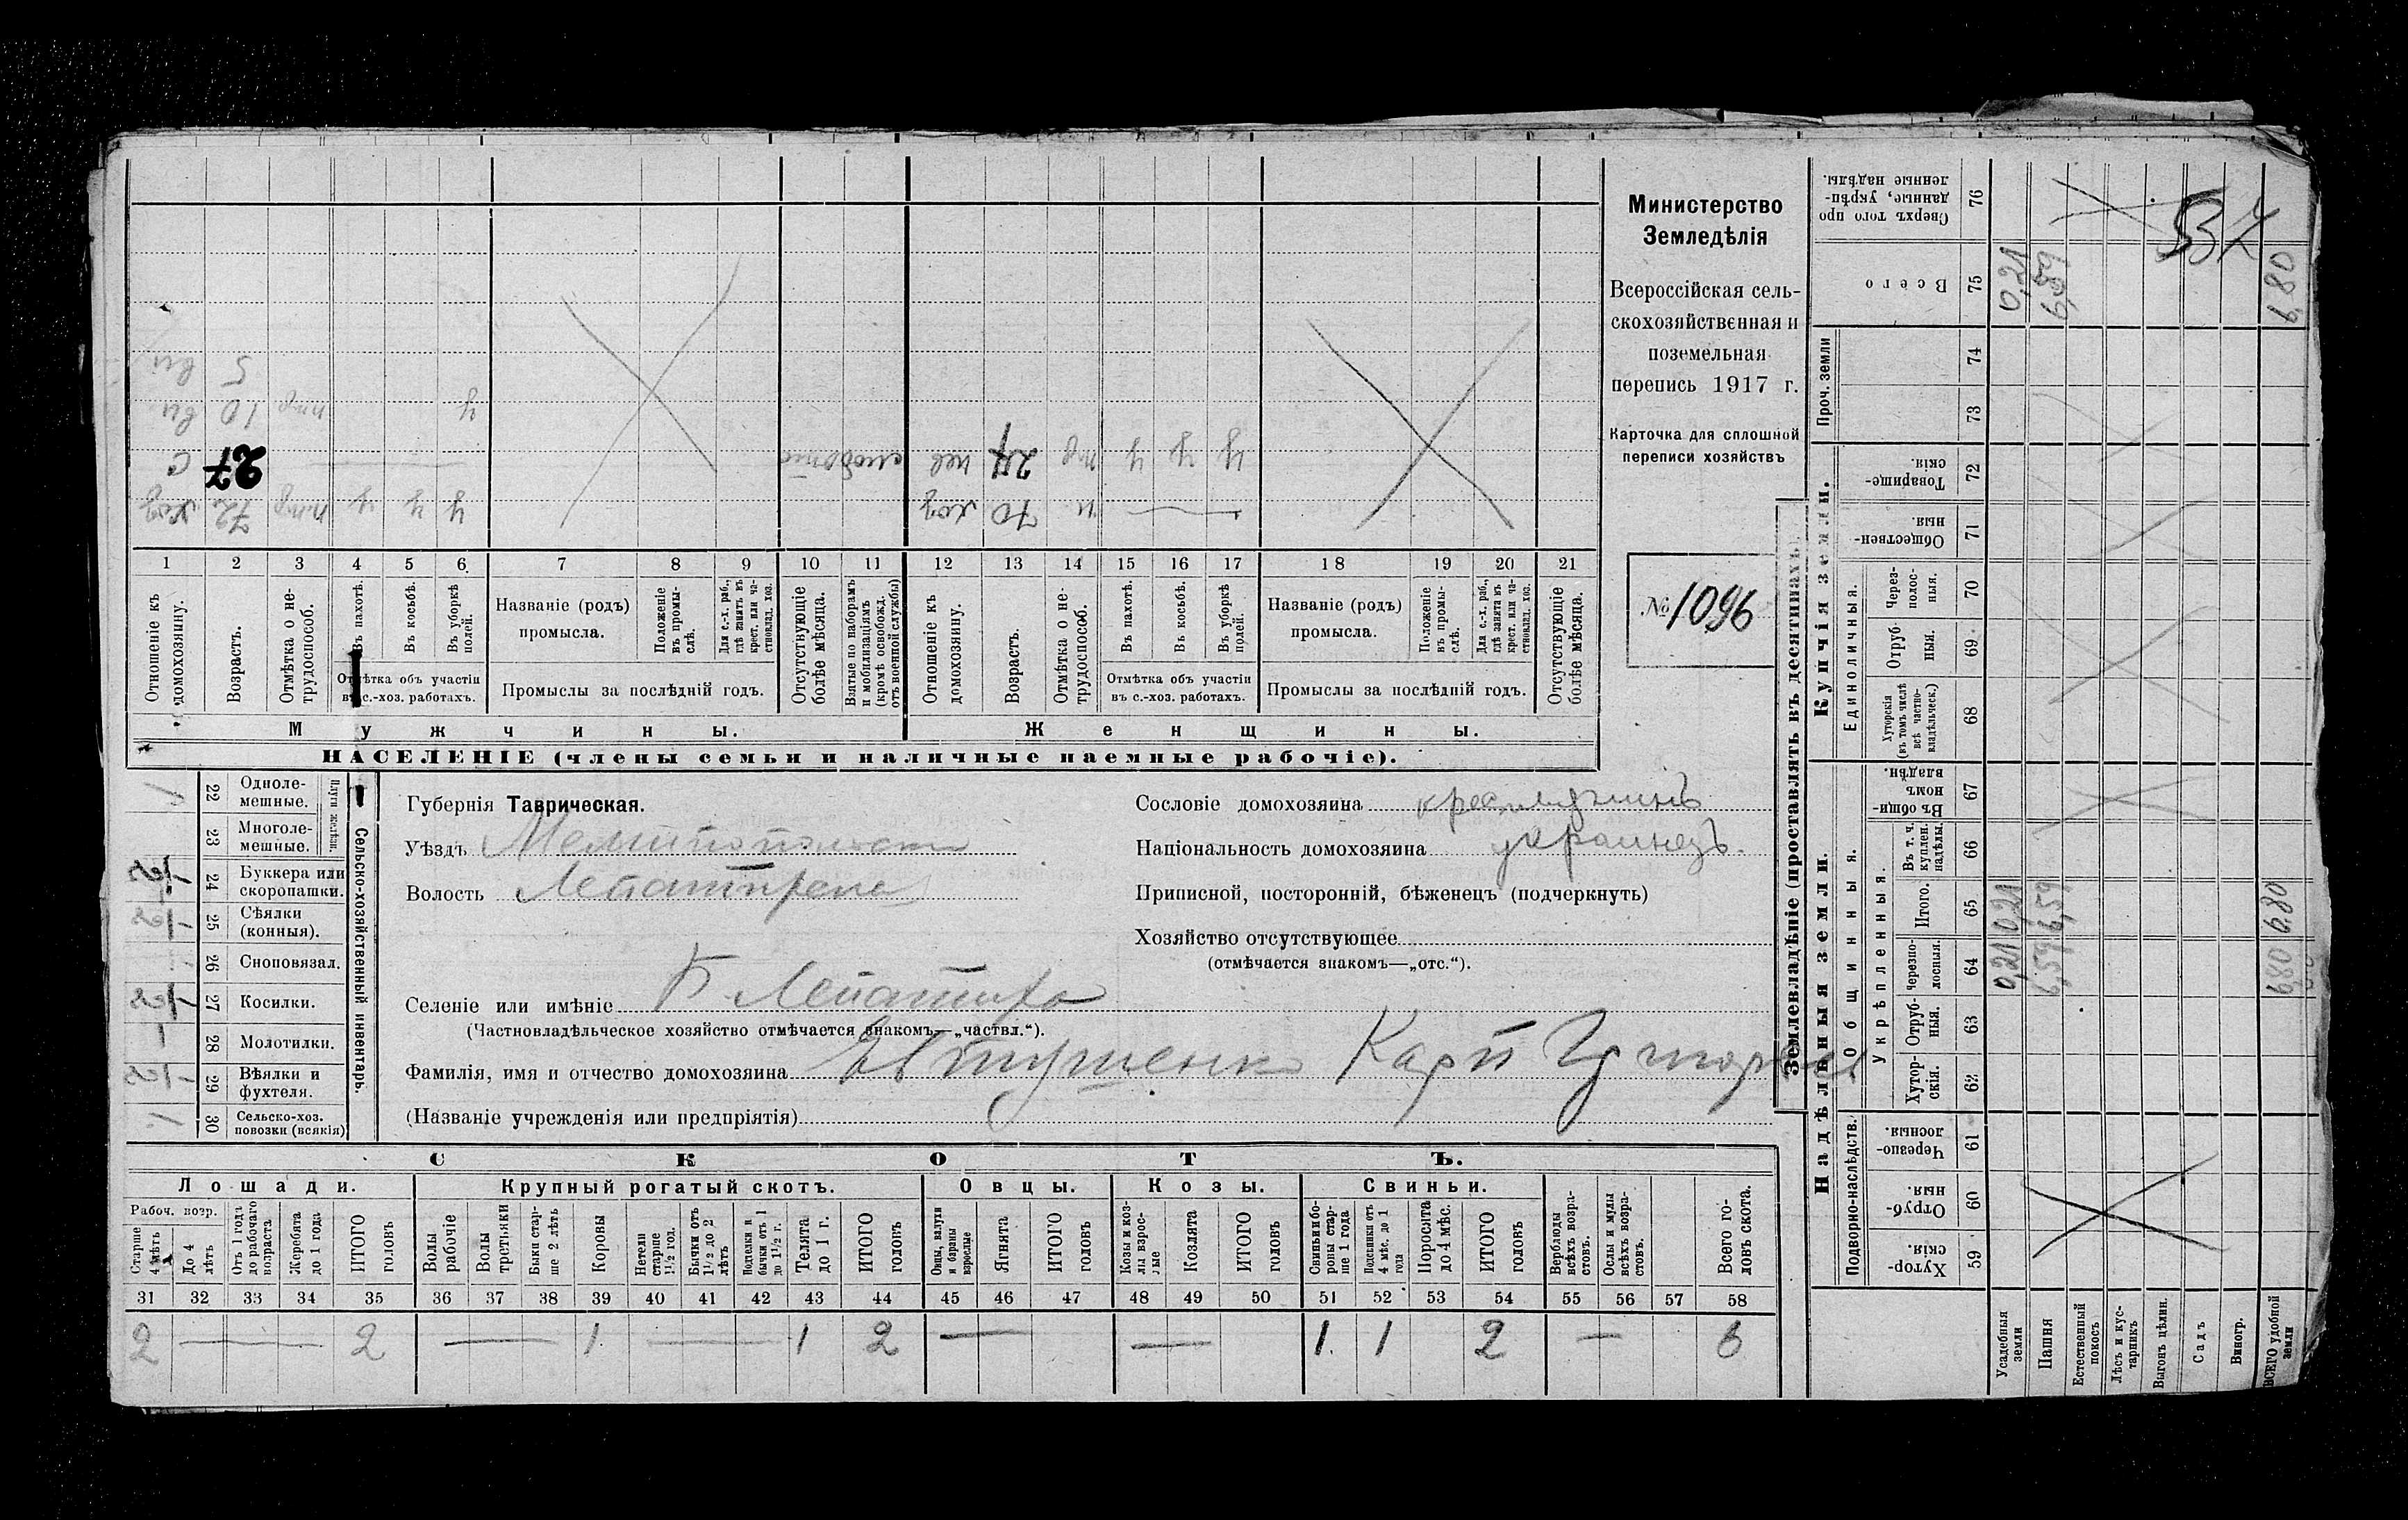 Министерство
Земледѣлія
Всероссійская сель-
скохозяйственная и
поземельная
перепись 1917 г.
Карточка для сплошной
переписи хозяйствъ
№ 1096
хоз 72 н.тр у у у
с 27
вн 10 н.тр у
вн 5
хоз 70 н
нев 27 тр у у у
1 2 3 4 5 6 7 8 9 10 11 12 13 14 15 16 17 18 19 20 21
Отношеніе къ домохозяину.
Возрастъ.
Отмѣтка о не-трудоспособ.
Въ пахотѣ.
Въ косьбѣ.
Въ уборкѣ полей.
Отмѣтка объ участіи
въ с.-хоз. работахъ.
Названіе (родъ)
промысла.
Положеніе въ промы-слѣ.
Для с.-х. раб., гдѣ занятъ въ крест. или ча-стновлад. хоз.
Промыслы за послѣдній годъ.
Отсутствующіе болѣе мѣсяца.
Взятые по наборамъ и мобилизаціямъ (кромѣ освобожд. отъ военной службы)
Отношеніе къ домохозяину.
Возрастъ.
Отмѣтка о не-трудоспособ.
Въ пахотѣ.
Въ косьбѣ.
Въ уборкѣ полей.
Отмѣтка объ участіи
въ с.-хоз. работахъ.
Названіе (родъ)
промысла.
Положеніе въ промы-слѣ.
Для с.-х. раб., гдѣ занята въ крест. или ча-стновлад. хоз.
Промыслы за послѣдній годъ.
Отсутствующіе болѣе мѣсяца.
Мужчины. Женщины.
НАСЕЛЕНІЕ (члены семьи и наличные наемные рабочіе).
Сельско-хозяйственный инвентарь.
Плуги желѣзн.
22 Одноле-мешные. 1
23 Многоле-мешные.
24 Буккера или скоропашки.
25 Сѣялки (конныя).
26 Сноповязал.
27 Косилки.
28 Молотилки. 1
29 Вѣялки и фухтеля.
30 Сельско-хоз. повозки (всякія) 1
Губернія Таврическая.
Уѣздъ Мелитопольскій
Волость
Селеніе или имѣніе Б Лепатиха
(Частновладѣльческое хозяйство отмѣчается знакомъ—„частвл.“).
Фамилія, имя и отчество домохозяина Евтушенко Карп Григорьев
(Названіе учрежденія или предпріятія)
Сословіе домохозяина крестьянинъ
Національность домохозяина украинецъ.
Приписной, посторонній, бѣженецъ (подчеркнуть)
Хозяйство отсутствующее
(отмѣчается знакомъ—„отс.“).
СКОТЪ.
Лошади. Крупный рогатый скотъ. Овцы. Козы. Свиньи.
Рабоч. возр.
Старше 4 лѣтъ
До 4 лѣтъ
Отъ 1 года до рабочаго возраста
Жеребята до 1 года
ИТОГО головъ
Волы рабочіе
Волы третьяки
Быки стар-ше 2 лѣтъ
Коровы
Нетели старше 1½ год.
Бычки отъ 1½ до 2 лѣтъ
Подтелки и бычки отъ 1 до 1½ г.
Телята до 1 г.
ИТОГО головъ
Овцы, валухи и бараны взрослые
Ягнята
ИТОГО головъ
Козы и коз-лы взрос-лые
Козлята
ИТОГО головъ
Свиньи и бо-ровы стар-ше 1 года
Подсвинки отъ 4 мѣс. до 1 года
Поросята до 4 мѣс.
ИТОГО головъ
Верблюды всѣхъ возра-стовъ.
Ослы и мулы всѣхъ возра-стовъ.
Всего го-ловъ скота.
31 32 33 34 35 36 37 38 39 40 41 42 43 44 45 46 47 48 49 50 51 52 53 54 55 56 57 58
2 — 2 — 1 — 1 2 — — 1 1 2 — 6
Землевладѣніе (проставлять въ десятинахъ).
Надѣльныя земли. Купчія земли.
Подворно-наслѣдств. Общинныя. Укрѣпленныя. Единоличныя. Проч. земли
59 Хутор-скія.
60 Отруб-ныя.
61 Черезпо-лосныя.
62 Хутор-скія.
63 Отруб-ныя.
64 Черезпо-лосныя. 0,21 6,59 6,80
65 Итого. 0,21 6,59 6,80
66 Въ т. ч. куплен. надѣлы.
67 Въ общин-номъ владѣн.
68 Хуторскія (въ томъ числѣ всѣ частно-владѣльческ.)
69 Отруб-ныя.
70 Через-полос-ныя.
71 Обществен-ныя.
72 Товарище-скія.
73
74
75 Всего 0,21 6,59 6,80
76 Сверхъ того про-данные, укрѣп-ленные надѣлы.
Усадебныя земли
Пашня
Естественный покосъ
Лѣсъ и кус-тарникъ
Выгонъ цѣлин.
Садъ
Виногр.
ВСЕГО удобной земли